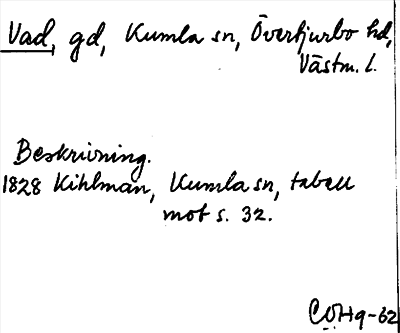 Vad, gd, Kumla sn, Övertjurbo hd,
Västm. l.
Beskrivning.
1828 Kihlman, Kumla sn, tabell
mot s. 32.
COHq-62